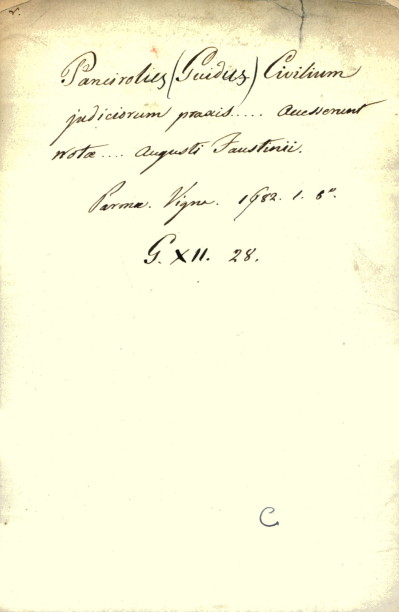 Pancirolus (Guidus) Civilium
judiciorum praxis..... Accesserunt
notæ.... Augusti Faustinii.
Parmæ. Vigna. 1682. 1. 8°.
G. XII. 28.
C